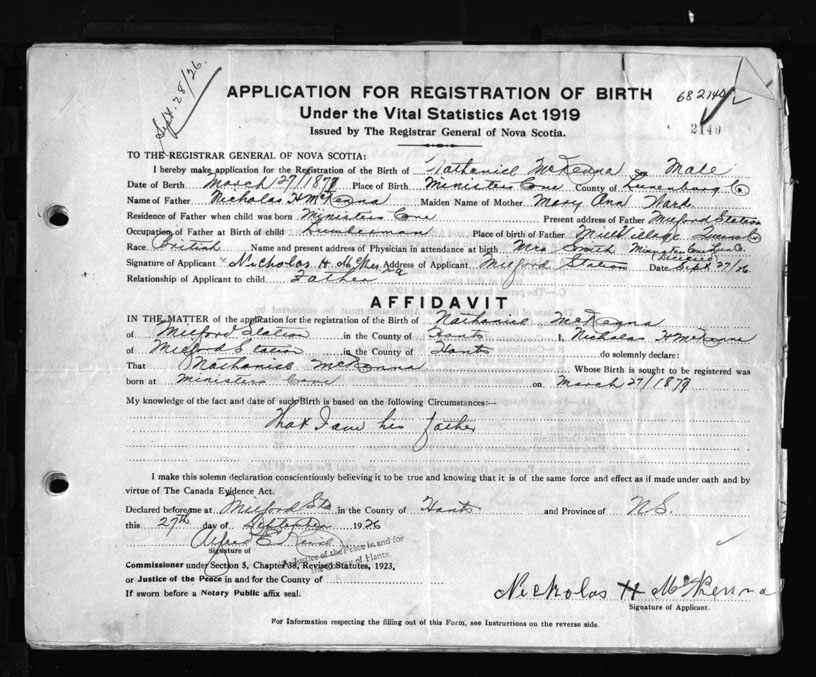 Sept. 28/26.
APPLICATION FOR REGISTRATION OF BIRTH
Under the Vital Statistics Act 1919
Issued by The Registrar General of Nova Scotia.
2140
TO THE REGISTRAR GENERAL OF NOVA SCOTIA:
I hereby make application for the Registration of the Birth of Nathaniel McKenna Sex Male
Date of Berth March 27/187 Place of Birth Ministers Cove County of Lunenburg Co
Name of Father Nicholas H McKenna Maiden Name of Mother Mary Ann Ward
Residence of Father when child was born Ministers Cove Present address of Father Milford Station
Occupation of Father at Birth of child Lumberman Place of birth of Father Mill Village Queens Co
Race British Name and present address of Physician in attendance at birth Mrs Smith (Deceased)
Signature of Applicant x Nicholas H McKenna Address of Applicant Milford Station Date Sept 27/26
Relationship of Applicant to child Father
AFFIDAVIT
IN THE MATTER of the application for the registration of the Birth of Nathaniel McKenna
of Milford Station in the County of Hants I, Nicholas H McKenna
of Milford Station in the County of Hants do solemnly declare:
That Nathaniel McKenna Whose Birth is sought to be registered was
born at Ministers Cove on March 27/187
My knowledge of the fact and date of such Birth is based on the following Circumstances:—
That I am his father
I make this solemn declaration conscientiously believing it to be true and knowing that it is of the same force and effect as if made under oath and by
virtue of The Canada Evidence Act.
Declared before me at Milford Sta in the County of Hants and Province of N.S.
this 27th day of September 1926
Alfred E
Signature of
A Justice of the Peace in and for
the County of Hants.
Commissioner under Section 5, Chapter 38, Revised Statutes, 1923,
or Justice of the Peace in and for the County of
If sworn before a Notary Public affix seal.
Nickolas H McKenna
Signature of Applicant.
For Information respecting the filling out of this Form, see Instructions on the reverse side.